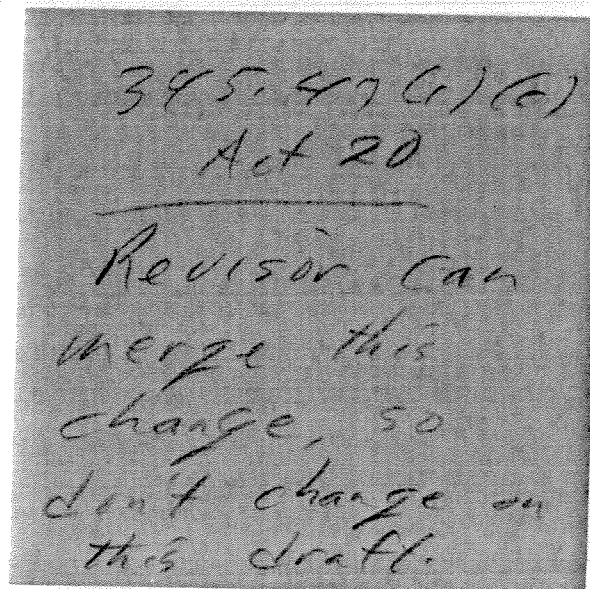 345.47(1)(c)
Act 20
Revisor can
merge this
change, so
don't change on
this draft.